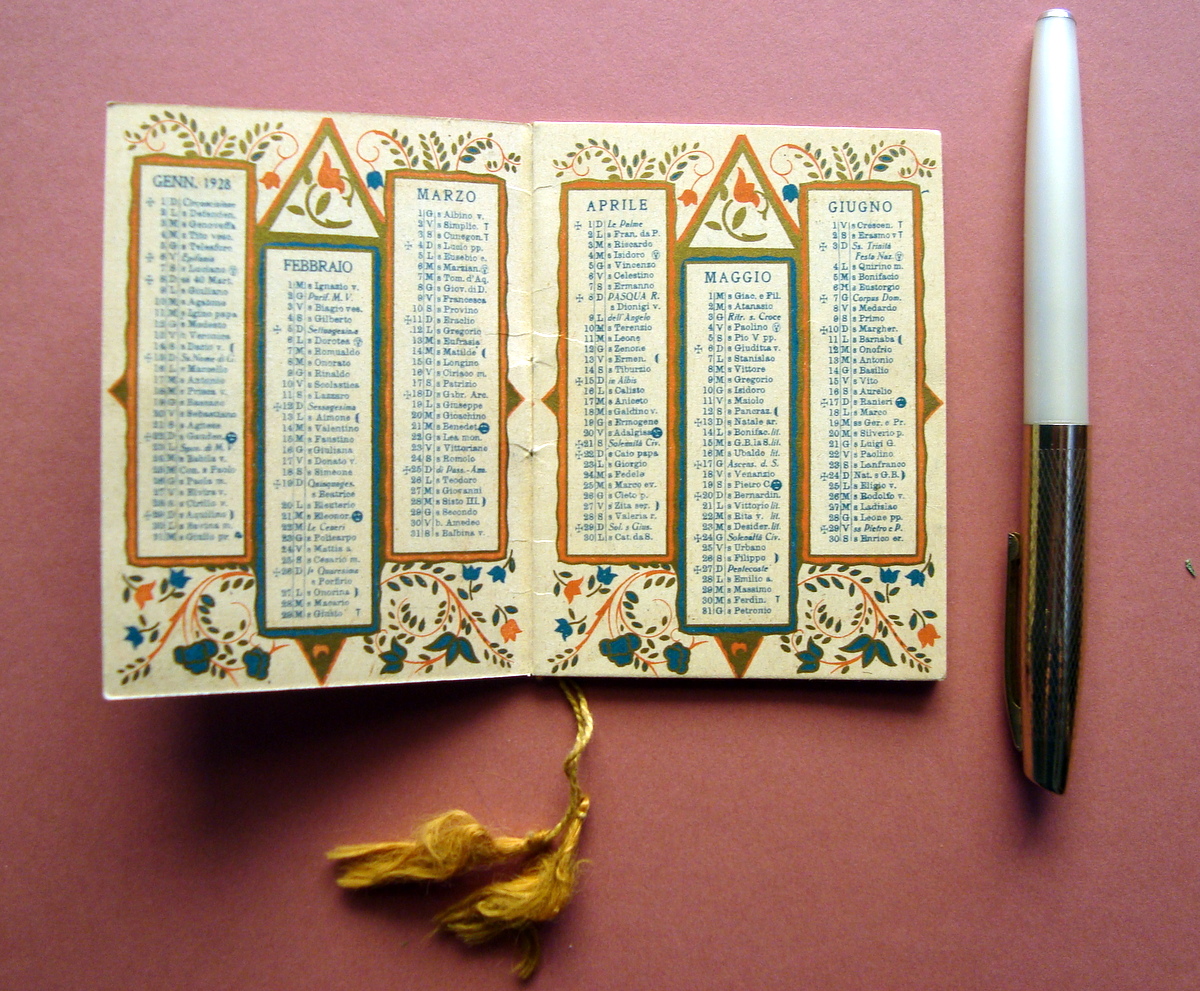 GENN. 1928
1 D Circoncisione
2 L s Defenden.
3 M s Genoveffa
4 M s Tito vesc.
5 G s Telesforo
6 V Epifania
7 S s Luciano
8 D ss 40 Mart.
9 L s Giuliano
10 M s Agatone
11 M s Igino papa
12 G s Modesto
13 V s Veronica
14 S s Dazio v.
15 D Ss. Nome di G.
16 L s Marcello
17 M s Antonio
18 M s Prisca v.
19 G s Bassano
20 V s Sebastiano
21 S s Agnese
22 D s Gauden.
23 L Spos. di M. V.
24 M s Babila v.
25 M Con. s Paolo
26 G s Paola m.
27 V s Elvira v.
28 S s Cirillo v.
29 D s Aquilino
30 L s Savina m.
31 M s Giulio pr.
FEBBRAIO
1 M s Ignazio v.
2 G Purif. M. V.
3 V s Biagio ves.
4 S s Gilberto
5 D Settuagesima
6 L s Dorotea
7 M s Romualdo
8 M s Onorato
9 G s Rinaldo
10 V s Scolastica
11 S s Lazzaro
12 D Sessagesima
13 L s Aimone
14 M s Valentino
15 M s Faustino
16 G s Giuliana
17 V s Donato v.
18 S s Simeone
19 D Quinquages.
s Beatrice
20 L s Eleuterio
21 M s Eleonor.
22 M Le Ceneri
23 G s Policarpo
24 V s Mattia a.
25 S s Cesario m.
26 D I Quaresima
s Porfirio
27 L s Onorina
28 M s Macario
29 M s Giusto T
MARZO
1 G s Albino v.
2 V s Simplic. T
3 S s Cunegon. T
4 D s Lucio pp.
5 L s Eusebio c.
6 M s Marzian.
7 M s Tom. d'Aq.
8 G s Giov. di D.
9 V s Francesca
10 S s Provino
11 D s Eraclio
12 L s Gregorio
13 M s Eufrasia
14 M s Matilde
15 G s Longino
16 V s Ciriaco m.
17 S s Patrizio
18 D s Gabr. Arc.
19 L s Giuseppe
20 M s Gioachino
21 M s Benedet.
22 G s Lea mon.
23 V s Vittoriano
24 S s Romolo
25 D di Pass.-Ann.
26 L s Teodoro
27 M s Giovanni
28 M s Sisto III.
29 G s Secondo
30 V b. Amedeo
31 S s Balbina v.
APRILE
1 D Le Palme
2 L s Fran. da P.
3 M s Riccardo
4 M s Isidoro
5 G s Vincenzo
6 V s Celestino
7 S s Ermanno
8 D PASQUA R.
s Dionigi v.
9 L dell'Angelo
10 M s Terenzio
11 M s Leone
12 G s Zenone
13 V s Ermen.
14 S s Tiburzio
15 D in Albis
16 L s Calisto
17 M s Aniceto
18 M s Galdino v.
19 G s Ermogene
20 V s Adalgisa
21 S Solennità Civ.
22 D s Caio papa
23 L s Giorgio
24 M s Fedele
25 M s Marco ev.
26 G s Cleto p.
27 V s Zita ser.
28 S s Valeria r.
29 D Sol. s Gius.
30 L s Cat. da S.
MAGGIO
1 M s Giac. e Fil.
2 M s Atanasio
3 G Ritr. s. Croce
4 V s Paolino
5 S s Pio V pp.
6 D s Giuditta v.
7 L s Stanislao
8 M s Vittore
9 M s Gregorio
10 G s Isidoro
11 V s Maiolo
12 S s Pancraz.
13 D s Natale ar.
14 L s Bonifac. lit.
15 M s G. B. la S. lit.
16 M s Ubaldo lit.
17 G Ascens. d. S.
18 V s Venanzio
19 S s Pietro C.
20 D s Bernardin.
21 L s Vittorio lit.
22 M s Rita v. lit.
23 M s Desider. lit.
24 G Solennità Civ.
25 V s Urbano
26 S s Filippo
27 D Pentecoste
28 L s Emilio a.
29 M s Massimo
30 M s Ferdin. T
31 G s Petronio
GIUGNO
1 V s Crescen. T
2 S s Erasmo v T
3 D Ss. Trinità
Festa Naz.
4 L s Quirino m.
5 M s Bonifacio
6 M s Eustorgio
7 G Corpus Dom.
8 V s Medardo
9 S s Primo
10 D s Margher.
11 L s Barnaba
12 M s Onofrio
13 M s Antonio
14 G s Basilio
15 V s Vito
16 S s Aurelio
17 D s Ranieri
18 L s Marco
19 M ss Ger. e Pr.
20 M s Silverio p.
21 G s Luigi G.
22 V s Paolino
23 S s Lanfranco
24 D Nat. s G. B.
25 L s Eligio v.
26 M s Rodolfo v.
27 M s Ladislao
28 G s Leone pp.
29 V ss Pietro e P.
30 S s Enrico er.